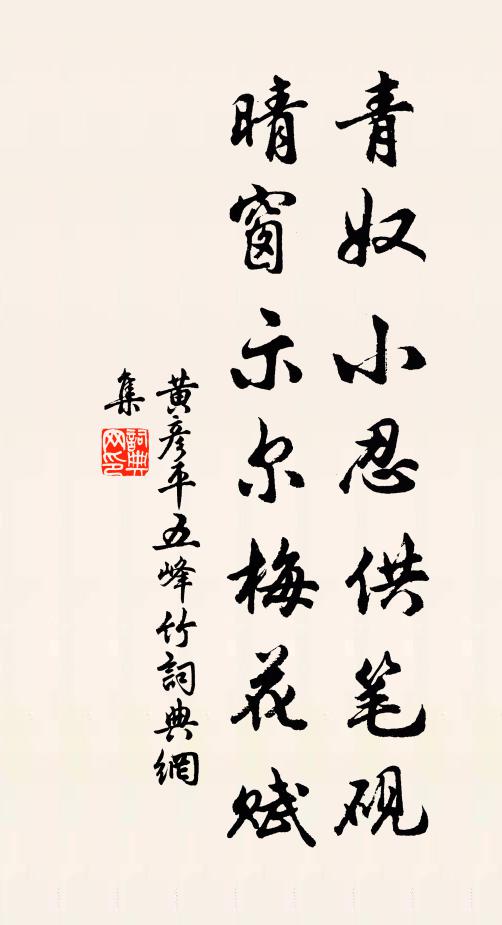 青奴小忍供笔砚
晴窗示尔梅花赋
黄彦平五峰竹詞典網
集
詞典网印